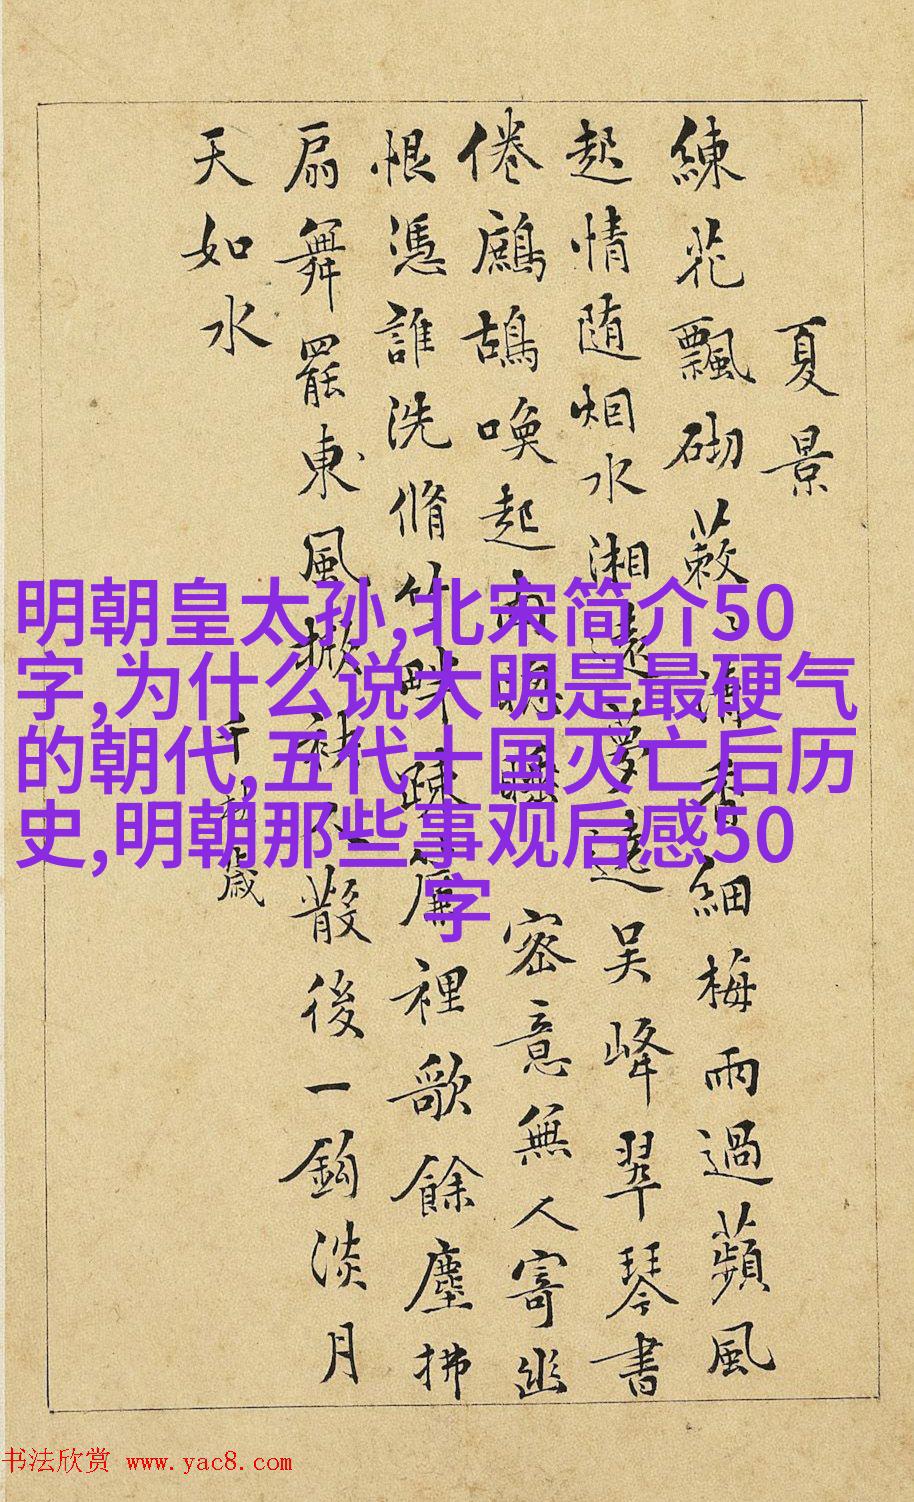 夏景
練花飄砌蔌〻清香細梅雨過蘋風
起情随烟水湘遠夢遶吳峰翠琴書
倦鷓鴣喚起南睡 密意無人寄幽
恨憑誰洗脩竹畔疎簾裡歌餘塵拂
扇舞罷東風掀袂人散後一鈎淡月
天如水
千秋歲
明朝皇太孙,北宋简介50
字,为什么说大明是最硬气
的朝代,五代十国灭亡后历
史,明朝那些事观后感50
字
书法欣赏 www.yac8.com